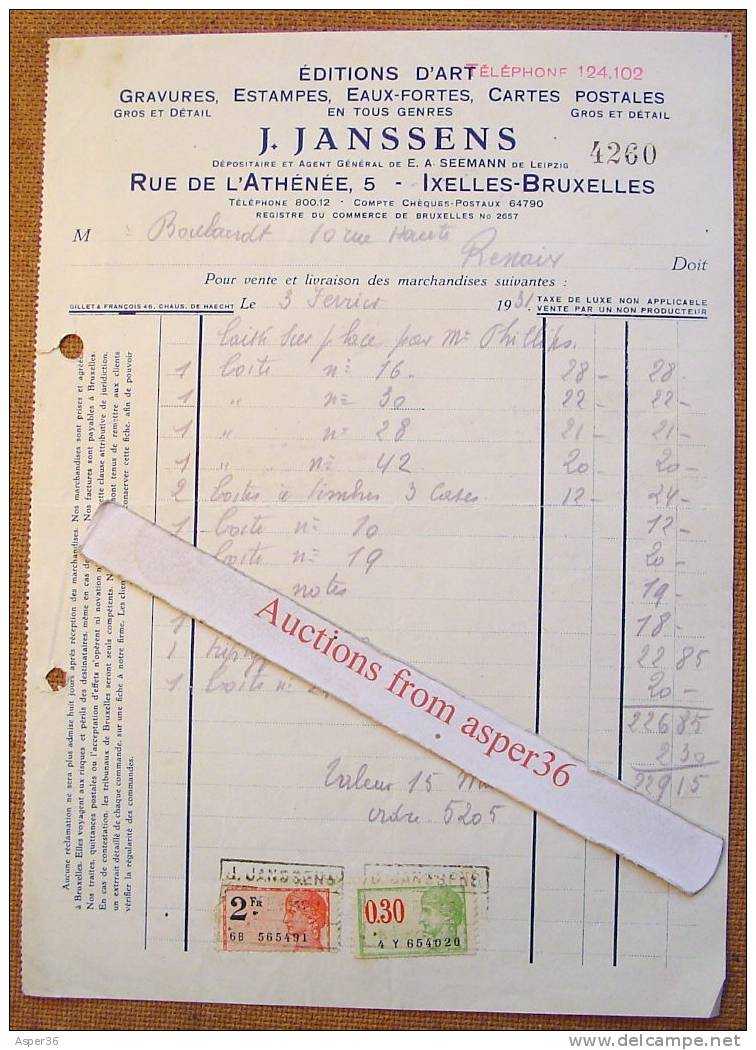 TÉLÉPHONE 124.102
ÉDITIONS D'ART
GRAVURES, ESTAMPES, EAUX-FORTES, CARTES POSTALES
GROS ET DÉTAIL EN TOUS GENRES GROS ET DÉTAIL
J. JANSSENS 4260
DÉPOSITAIRE ET AGENT GÉNÉRAL DE E. A. SEEMANN DE LEIPZIG
RUE DE L'ATHÉNÉE, 5 - IXELLES-BRUXELLES
TÉLÉPHONE 800.12 - COMPTE CHÈQUES-POSTAUX 64790
REGISTRE DU COMMERCE DE BRUXELLES No 2657
M 10 rue Haute
Renaix Doit
Pour vente et livraison des marchandises suivantes :
GILLET & FRANÇOIS 46, CHAUS. DE HAECHT Le 3 Fevrier 1931. TAXE DE LUXE NON APPLICABLE
VENTE PAR UN NON PRODUCTEUR
sur place par Mr Phillips.
1 boite n= 16. 28 - 28 -
1 " n= 30 22 - 22 -
1 " n= 28 21 - 21 -
1 " n= 42 20 - 20 -
2 boites à timbres 3 cases 12 - 24 -
1 boite n= 10 12 -
boite n= 19 20 -
notes 19 -
1 18 -
1 22 85
1 boite n= 20 -
226 85
2 30
229 15
Valeur 15
ordre 5205
Aucune réclamation ne sera plus admise huit jours après réception des marchandises. Nos marchandises sont prises et agréées
à Bruxelles. Elles voyagent aux risques et périls des destinataires, même en cas de Nos factures sont payables à Bruxelles.
Nos traites, quittances postales ou l'acceptation d'effets n'opèrent ni novation n cette clause attributive de juridiction.
En cas de contestation, les tribunaux de Bruxelles seront seuls compétents. N sont tenus de remettre aux clients
un extrait détaillé de chaque commande, sur une fiche à notre firme. Les clien conserver cette fiche, afin de pouvoir
vérifier la régularité des commandes.
Auctions from asper36
J. JANSSENS
J. JANSSENS
2 FR
6B 565491
0.30
4 Y 654020
Asper36
www.delcampe.net